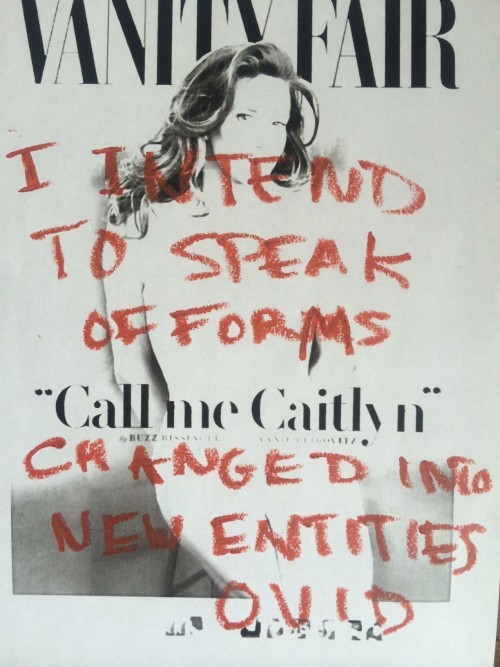 VANITY FAIR
I INTEND
TO SPEAK
OF FORMS
“Call me Caitlyn”
By BUZZ BISSINGER
CHANGED INTO
NEW ENTITIES
OVID